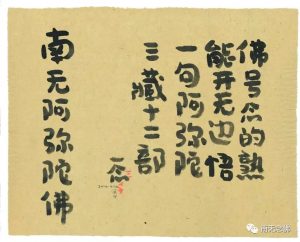 佛号念的熟
能开无边悟
一句阿弥陀
三藏十二部
南无阿弥陀佛